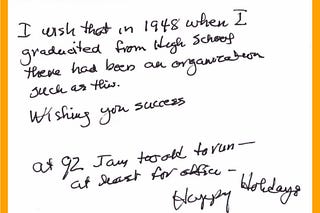 I wish that in 1948 when I
graduated from High School
there had been an organization
such as this.
Wishing you success
at 92 I am too old to run—
at least for office—
Happy Holidays